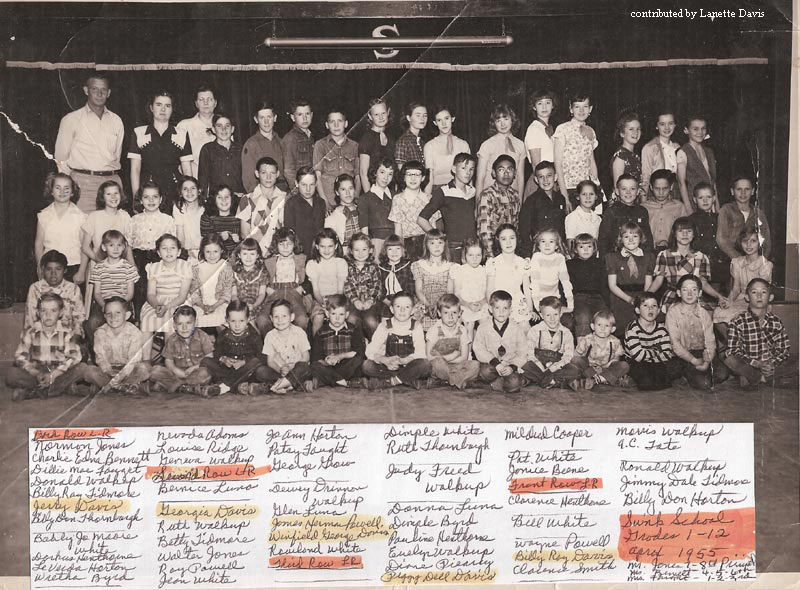 contributed by Lanette Davis
S
Back Row L-R
Norman Jones
Charlie Edna Bennett
Dillie Mae Faught
Donald Walkup
Billy Ray Tidmore
Jerry Davis
Billy Don Thornbaugh
Bobby Jo Moore
White
Dorkus Henthorne
LeVerda Horton
Wretha Byrd
Nevada Adams
Louise Ridge
Geneva Walkup
Second Row L-R
Bernice Luna
Georgia Davis
Ruth Walkup
Betty Tidmore
Walter Jones
Roy Powell
Jean White
Jo Ann Horton
Patsy Faught
George Grow
Dewey Drennon
Walkup
Glen Luna
James Herman Powell
Winfield George Davis
Rowland White
Third Row L-R
Dimple White
Ruth Thornbrugh
Judy Freed
Walkup
Donna Luna
Dimple Byrd
Pauline Henthorne
Evelyn Walkup
Diane Piearcy
Peggy Dell Davis
Mildred Cooper
Pat White
Janice Bene
Front Row L-R
Clarence Henthorne
Bill White
Wayne Powell
Billy Roy Davis
Clarence Smith
Mavis Walkup
A.C. Tate
Ronald Walkup
Jimmy Dale Tidmore
Billy Don Horton
Sunk School
Grades 1-12
April 1955
Mr. Jones 7-8th
Mrs. Bennett 4-5-6th
Mrs. Faught - 1-2-3rd